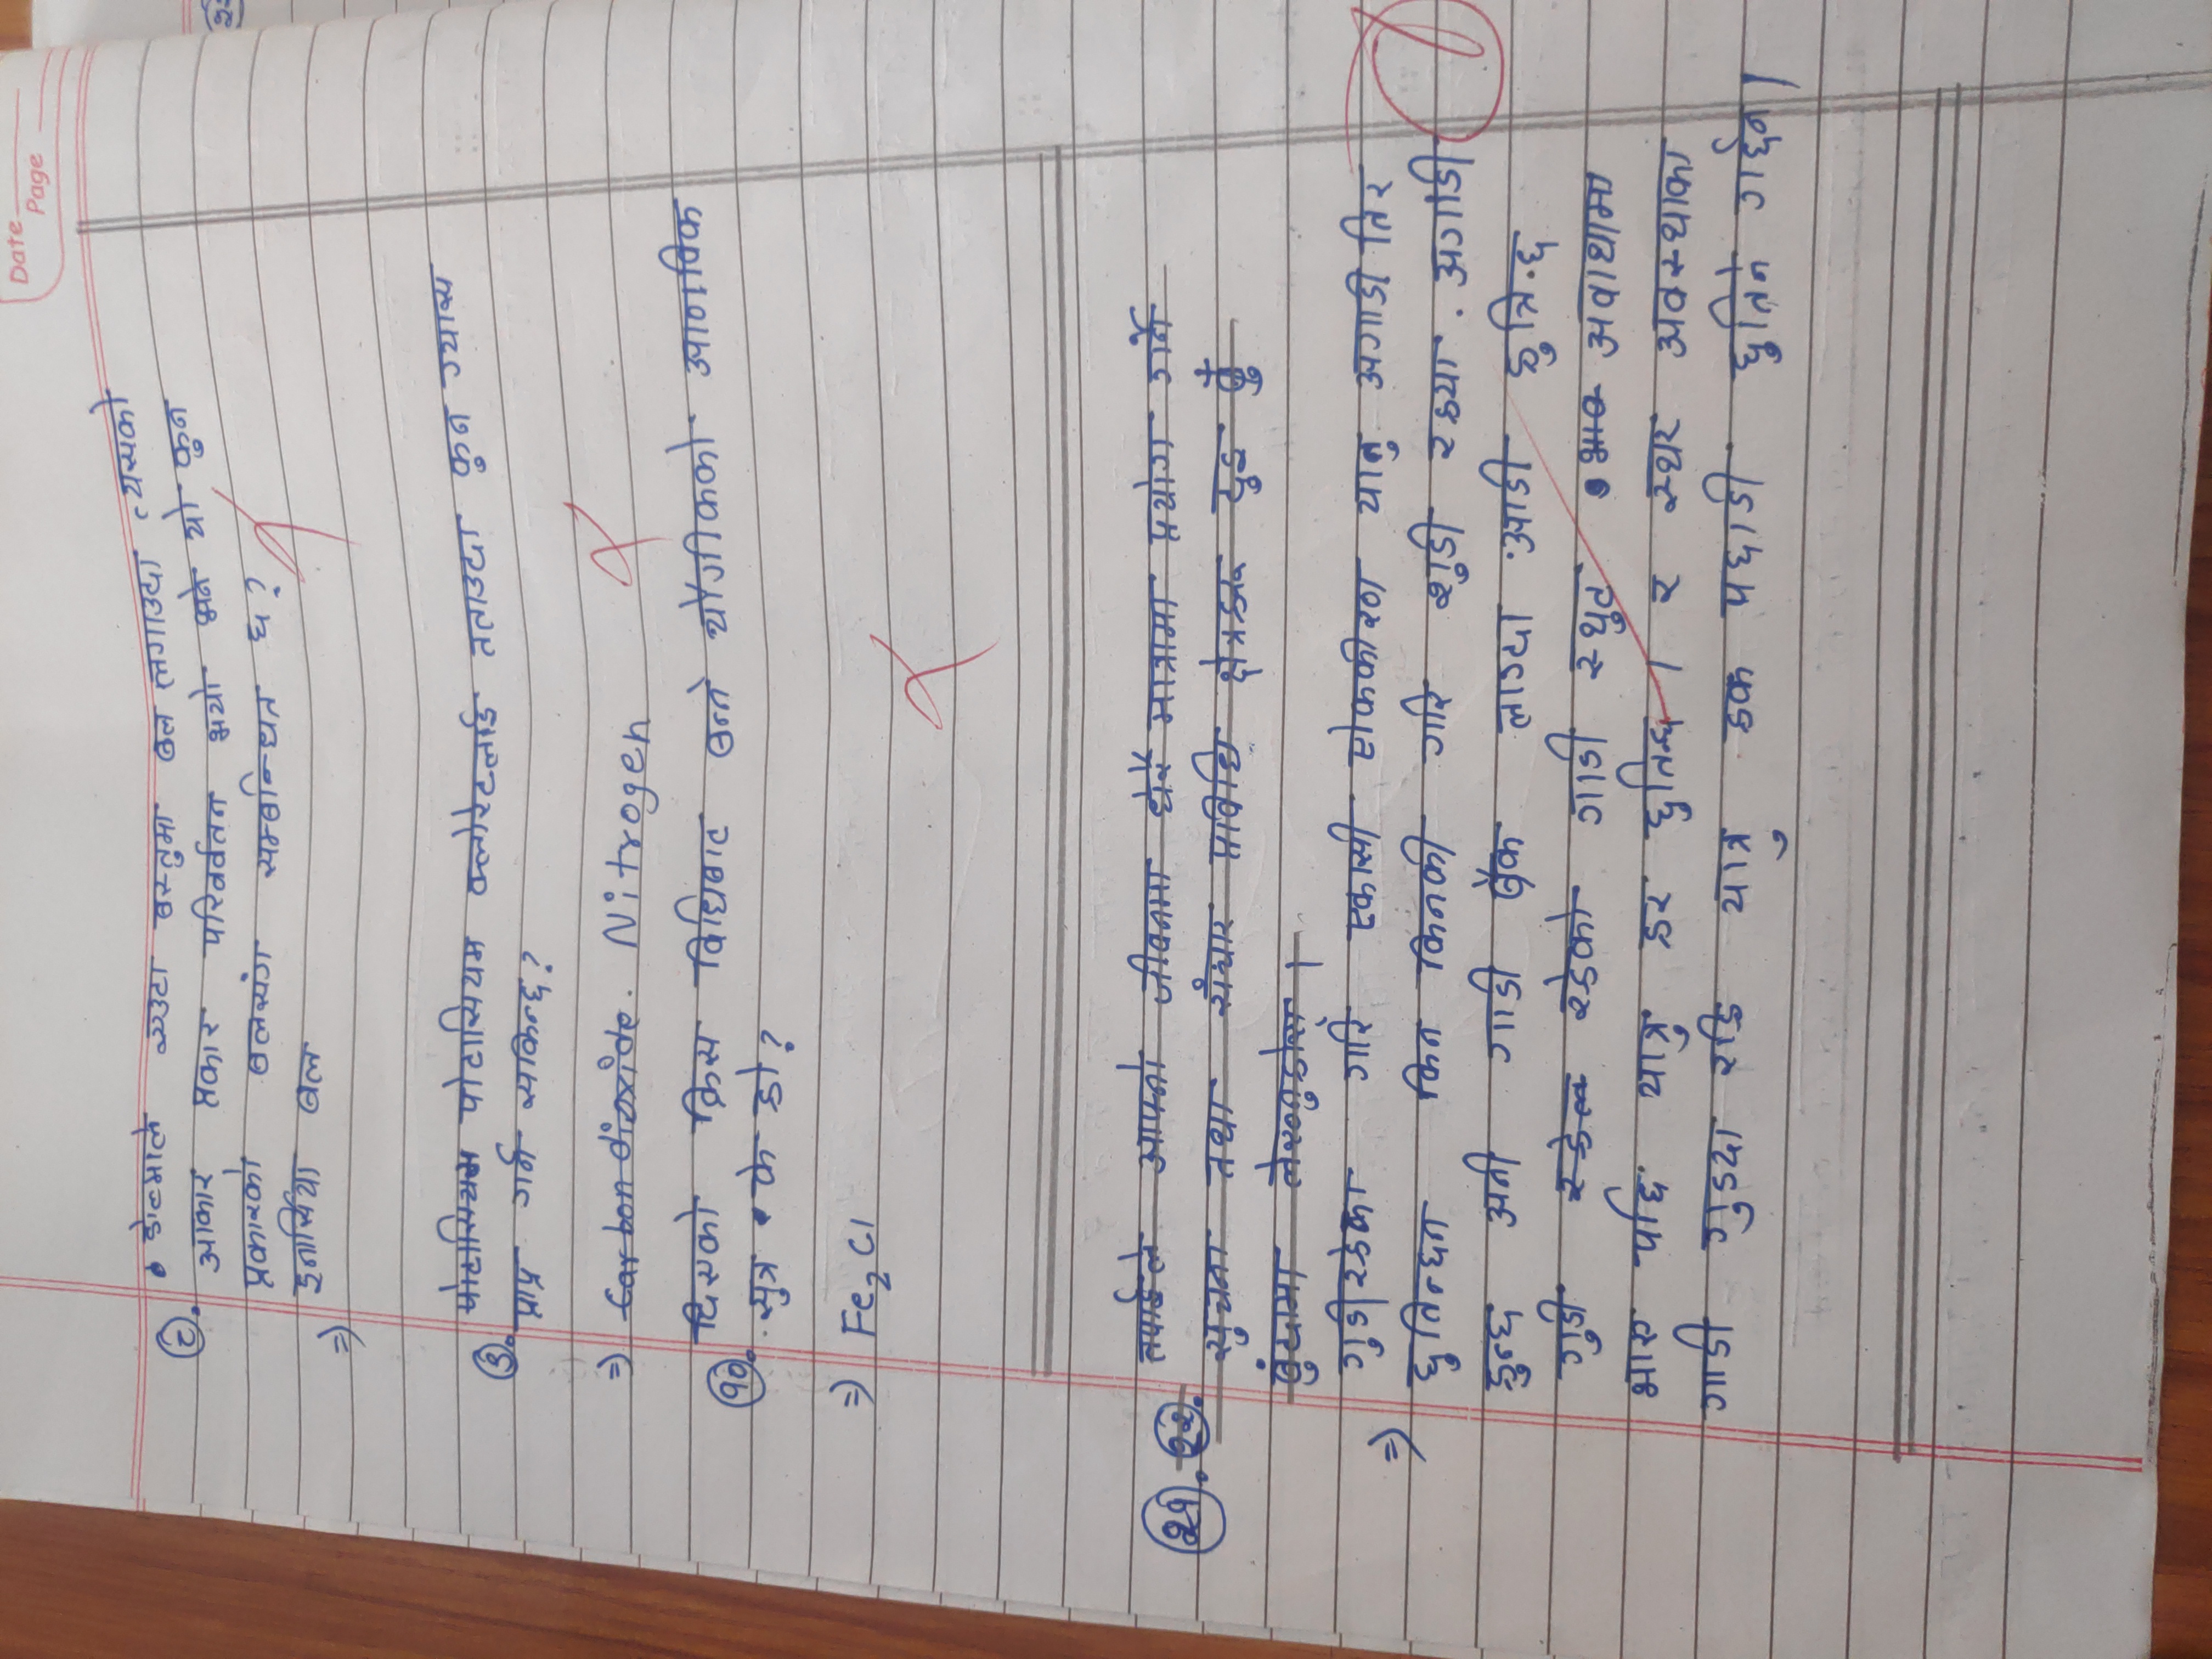 Date
Page
८. डोल्माले एउटा बस्तुमा बल लगाउदा त्यसको
आकार प्रकार परिवर्वतन भयो भने यो कुन
प्रकारको बलसंग सम्बन्धित छ?
=) इनार्सिया बल
९. पोटासियम पोटासियम क्लोरेटलाई तताउदा कुन ग्यास
प्राप्त गर्न सकिन्छ?
=) Carbon dioxide. Nitrogen
१०. दिएको क्रिस विधिबाट बन्ने यौगीकको आणविक
सुत्र के हो?
=) Fe2Cl
२१. २२. तपाईले आफ्नो जीवनमा धेरै मात्रामा प्रयोग गर्ने
सुचना तथा संचार प्रविधि क्षेत्रहरु दुइ बुँ
बुंदामा लेख्नुहोस् ।
=) गुडीरहेका गारि एकासी रोककीरण यात्रु अगाडी तिर
हुतिन्छन किन किनकी गारि गुडी रह्या. अगाडी
हुन्छ अनी गाडी ब्रैक लाग्दा आडी हुत्रिन्छ
गुडी रहेको गाडी स्थुट अवाथामा
भाए पछि यात्रु हर हुतिन्छ । र स्थर अवस्थाका
गाडी गुडदा रहि यात्रु हक पछाडी हुतिने गर्छन ।